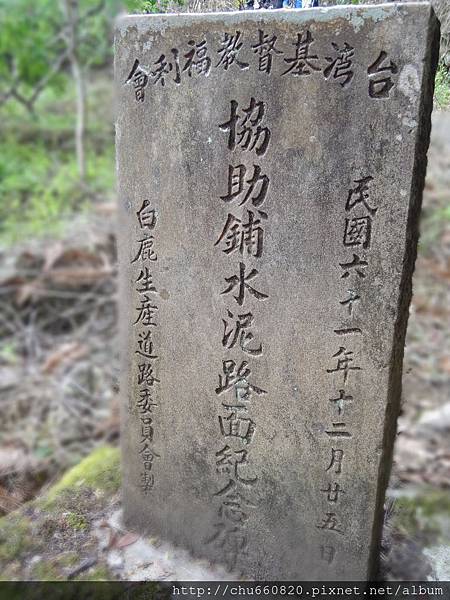 台灣基督教福利會
民國六十一年十二月廿五日
協助鋪水泥路面紀念碑
白鹿生產道路委員會製
http://chu660820.pixnet.net/album